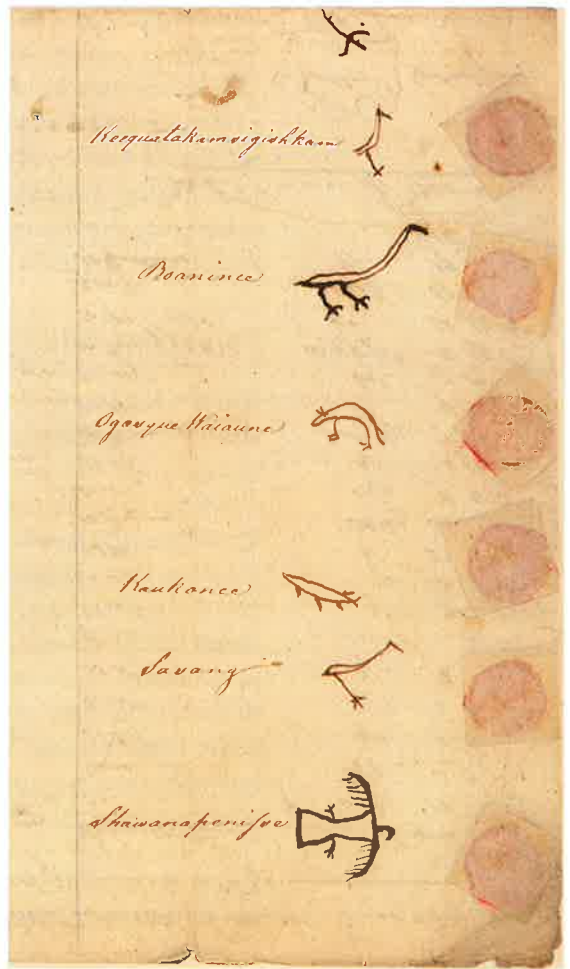 Keequatakamsigishkam
Boanince
Ogawque Waiaune
Kaukonce
Savang
Shawanapenisse